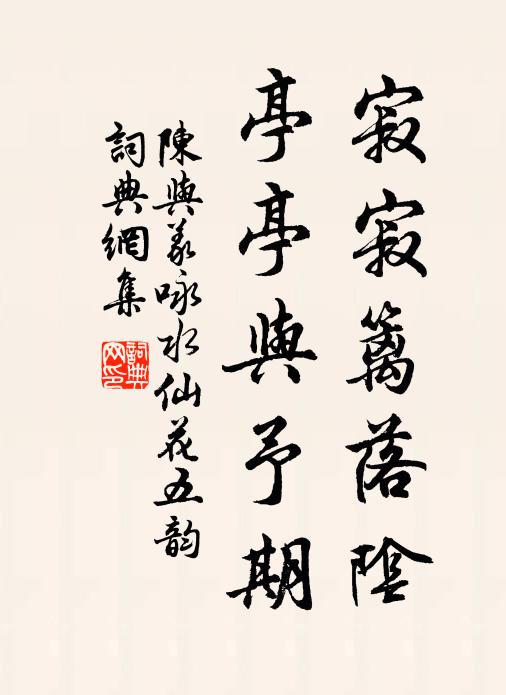 寂寂篱落陰
亭亭與予期
陳與義咏水仙花五韵
詞典網集
詞典
网印